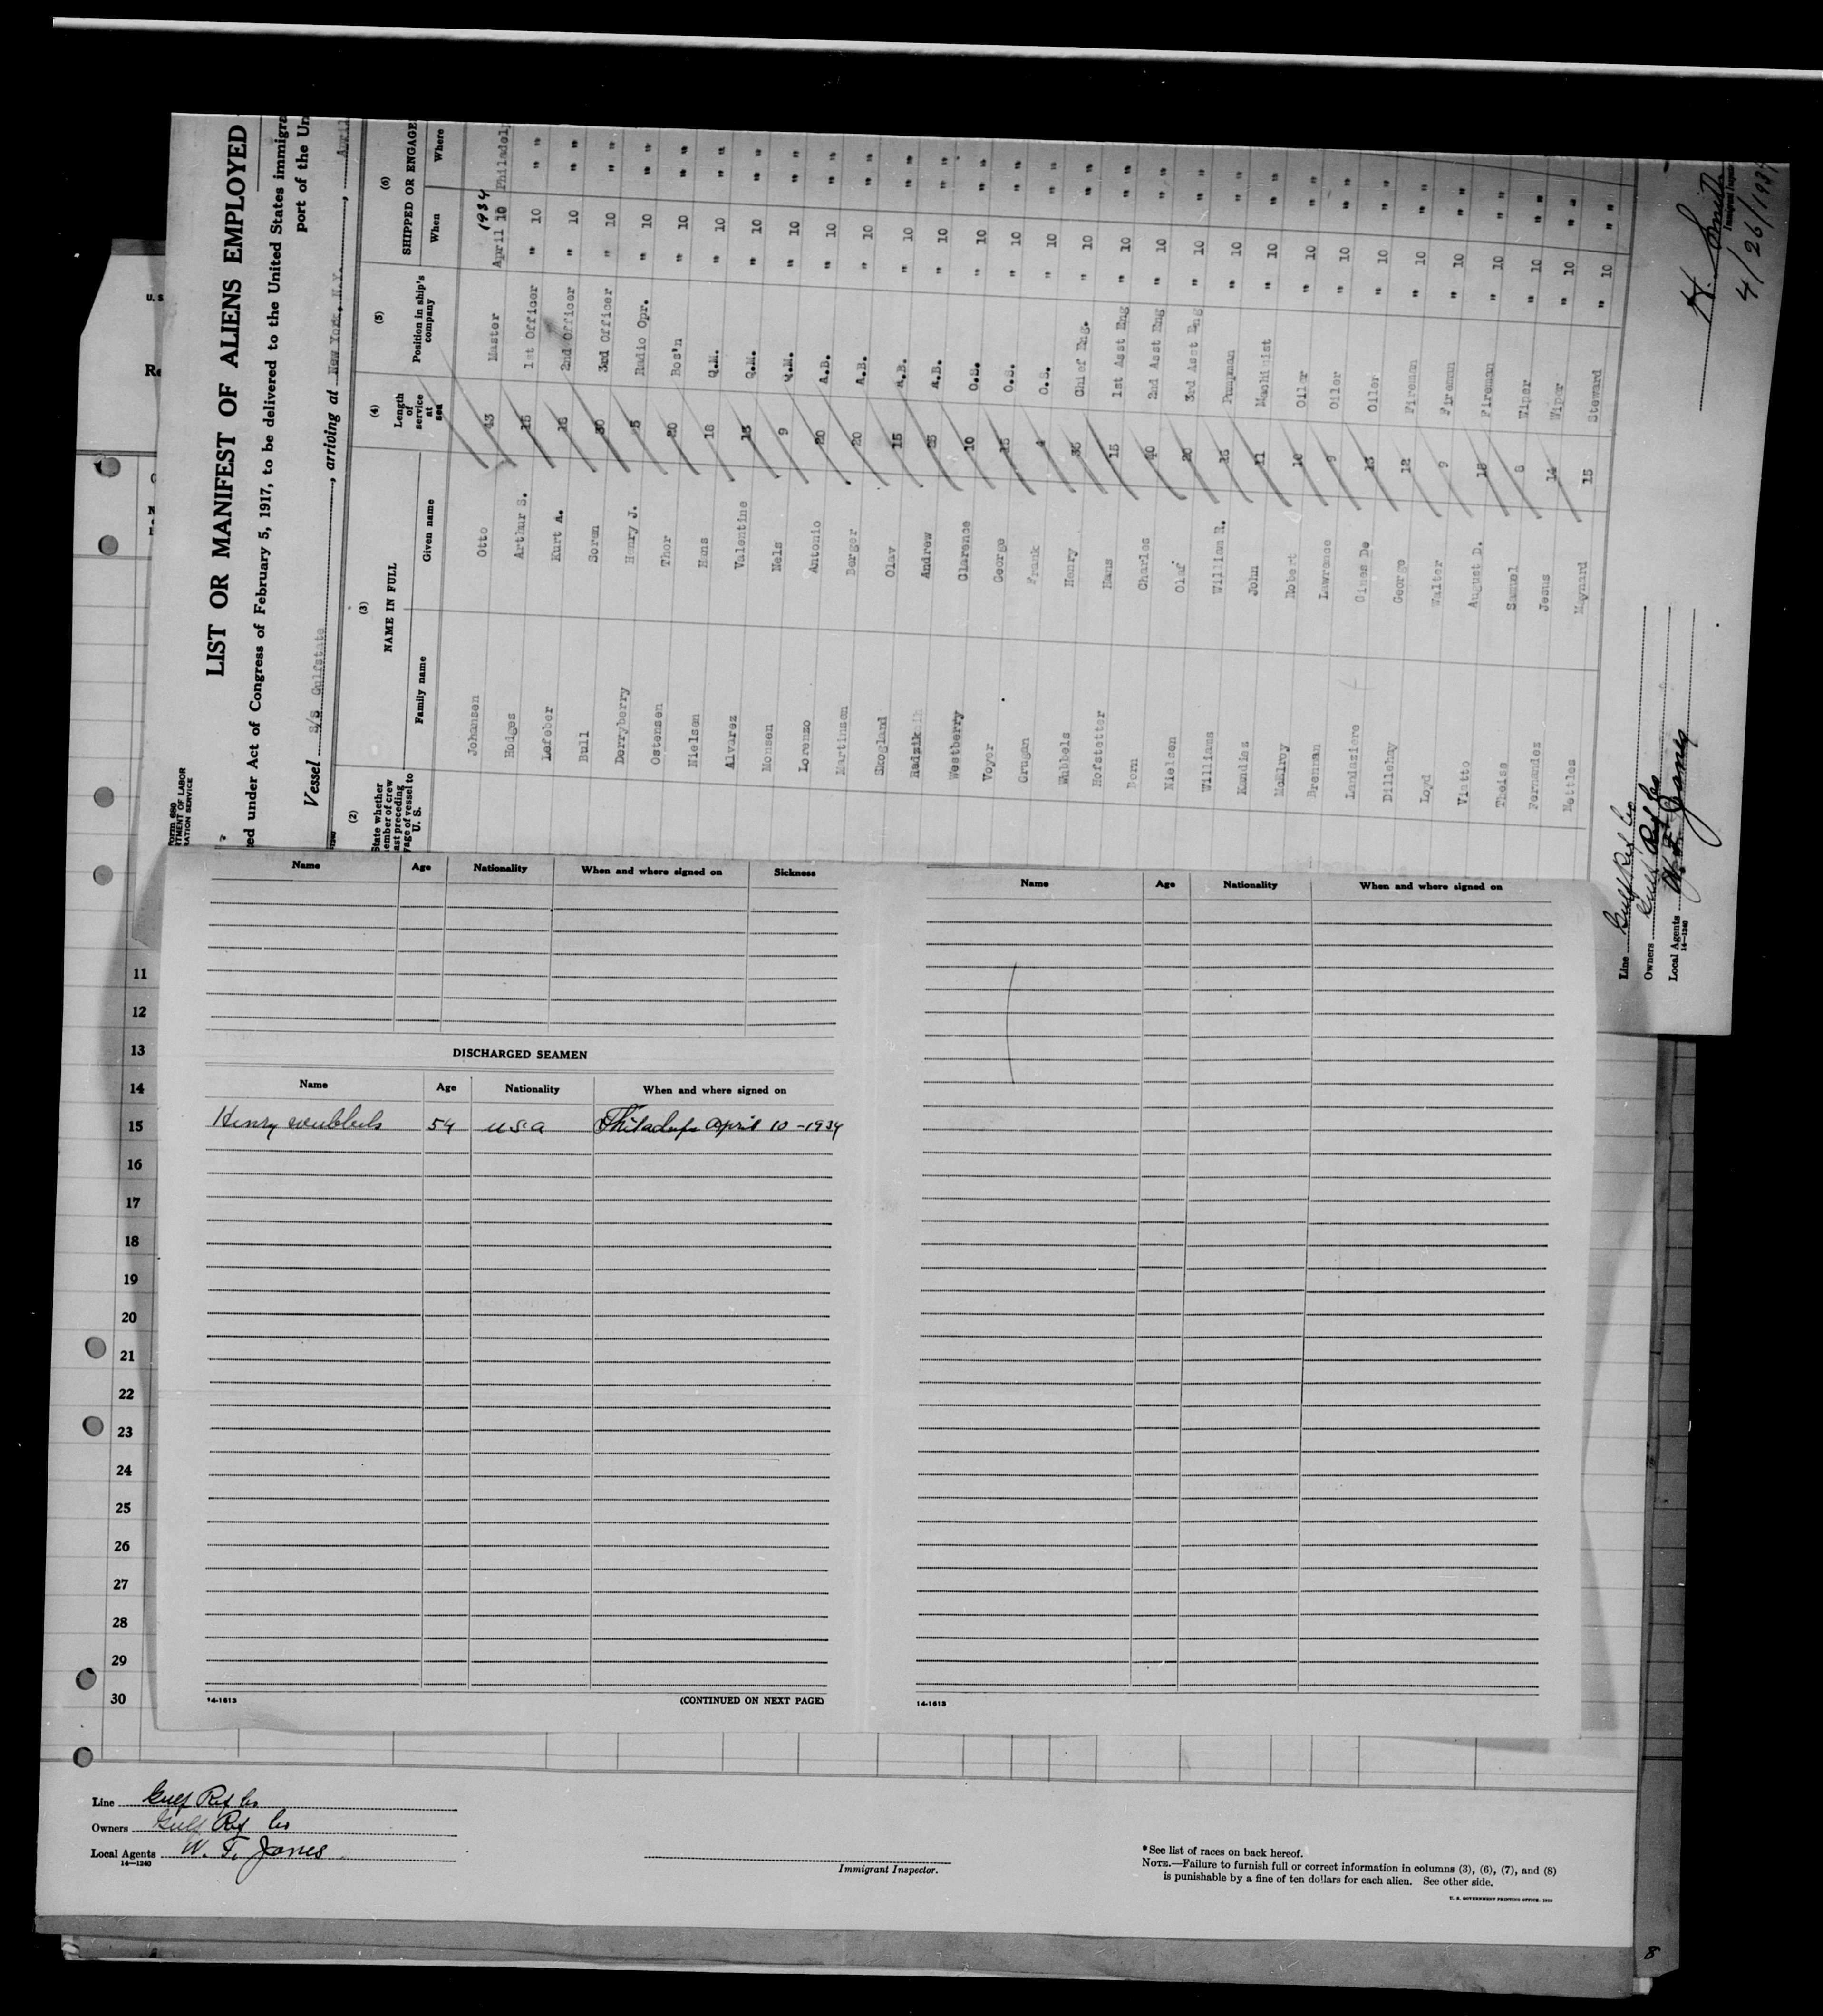 LIST OR MANIFEST OF ALIENS EMPLOYED
ed under Act of Congress of February 5, 1917, to be delivered to the United States immigra
port of the Un
Vessel S/S Gulfstate, arriving at New York, N.Y., April
(2) (3) (4) (5) (6)
State whether member of crew last preceding voyage of vessel to U. S.
NAME IN FULL
Family name Given name
Length of service at sea
Position in ship's company
SHIPPED OR ENGAGE
When Where
1934
Johansen Otto 43 Master April 10 Philadelp
Hodges Arthur S. 15 1st Officer " 10 " "
Lefeber Kurt A. 18 2nd Officer " 10 " "
Bull Soren 30 3rd Officer " 10 " "
Derryberry Henry J. 5 Radio Opr. " 10 " "
Ostensen Thor 20 Bos'n " 10 " "
Nielsen Hans 18 Q.M. " 10 " "
Alvarez Valentine 15 Q.M. " 10 " "
Monsen Nels 9 Q.M. " 10 " "
Lorenzo Antonio 20 A.B. " 10 " "
Martinsen Berger 20 A.B. " 10 " "
Skogland Olav 15 A.B. " 10 " "
Andrew 25 A.B. " 10 " "
Westberry Clarence 10 O.S. " 10 " "
Voyer George 15 O.S. " 10 " "
Grugan Frank 4 O.S. " 10 " "
Wubbels Henry 35 Chief Eng. " 10 " "
Hofstetter Hans 15 1st Asst Eng " 10 " "
Dorn Charles 40 2nd Asst Eng " 10 " "
Nielsen Olaf 20 3rd Asst Eng " 10 " "
Williams William R. 15 Pumpman " 10 " "
Kandiez John 11 Machinist " 10 " "
McElroy Robert 10 Oiler " 10 " "
Brennan Lawrence 9 Oiler " 10 " "
Landaziere Gines De 13 Oiler " 10 " "
Dillehay George 12 Fireman " 10 " "
Loyd Walter 9 Fireman " 10 " "
Viatto August D. 18 Fireman " 10 " "
Theise Samuel 8 Wiper " 10 " "
Fernandez Jesus 14 Wiper " 10 " "
Nettles Maynard 15 Steward " 10 " "
Line Gulf Ref Co
Owners Gulf Ref Co
Local Agents W. F. Jones
14—1240
H. Smith
Immigrant Inspe
4/26/1934
Name Age Nationality When and where signed on Sickness
DISCHARGED SEAMEN
Name Age Nationality When and where signed on
Henry Wubbels 54 USA Philadep April 10 -1934
14-1613
(CONTINUED ON NEXT PAGE)
Name Age Nationality When and where signed on
14-1613
11
12
13
14
15
16
17
18
19
20
21
22
23
24
25
26
27
28
29
30
Line Gulf Ref Co
Owners Gulf Ref Co
Local Agents W. F. Jones
14—1240
Immigrant Inspector.
*See list of races on back hereof.
NOTE.—Failure to furnish full or correct information in columns (3), (6), (7), and (8)
is punishable by a fine of ten dollars for each alien. See other side.
8